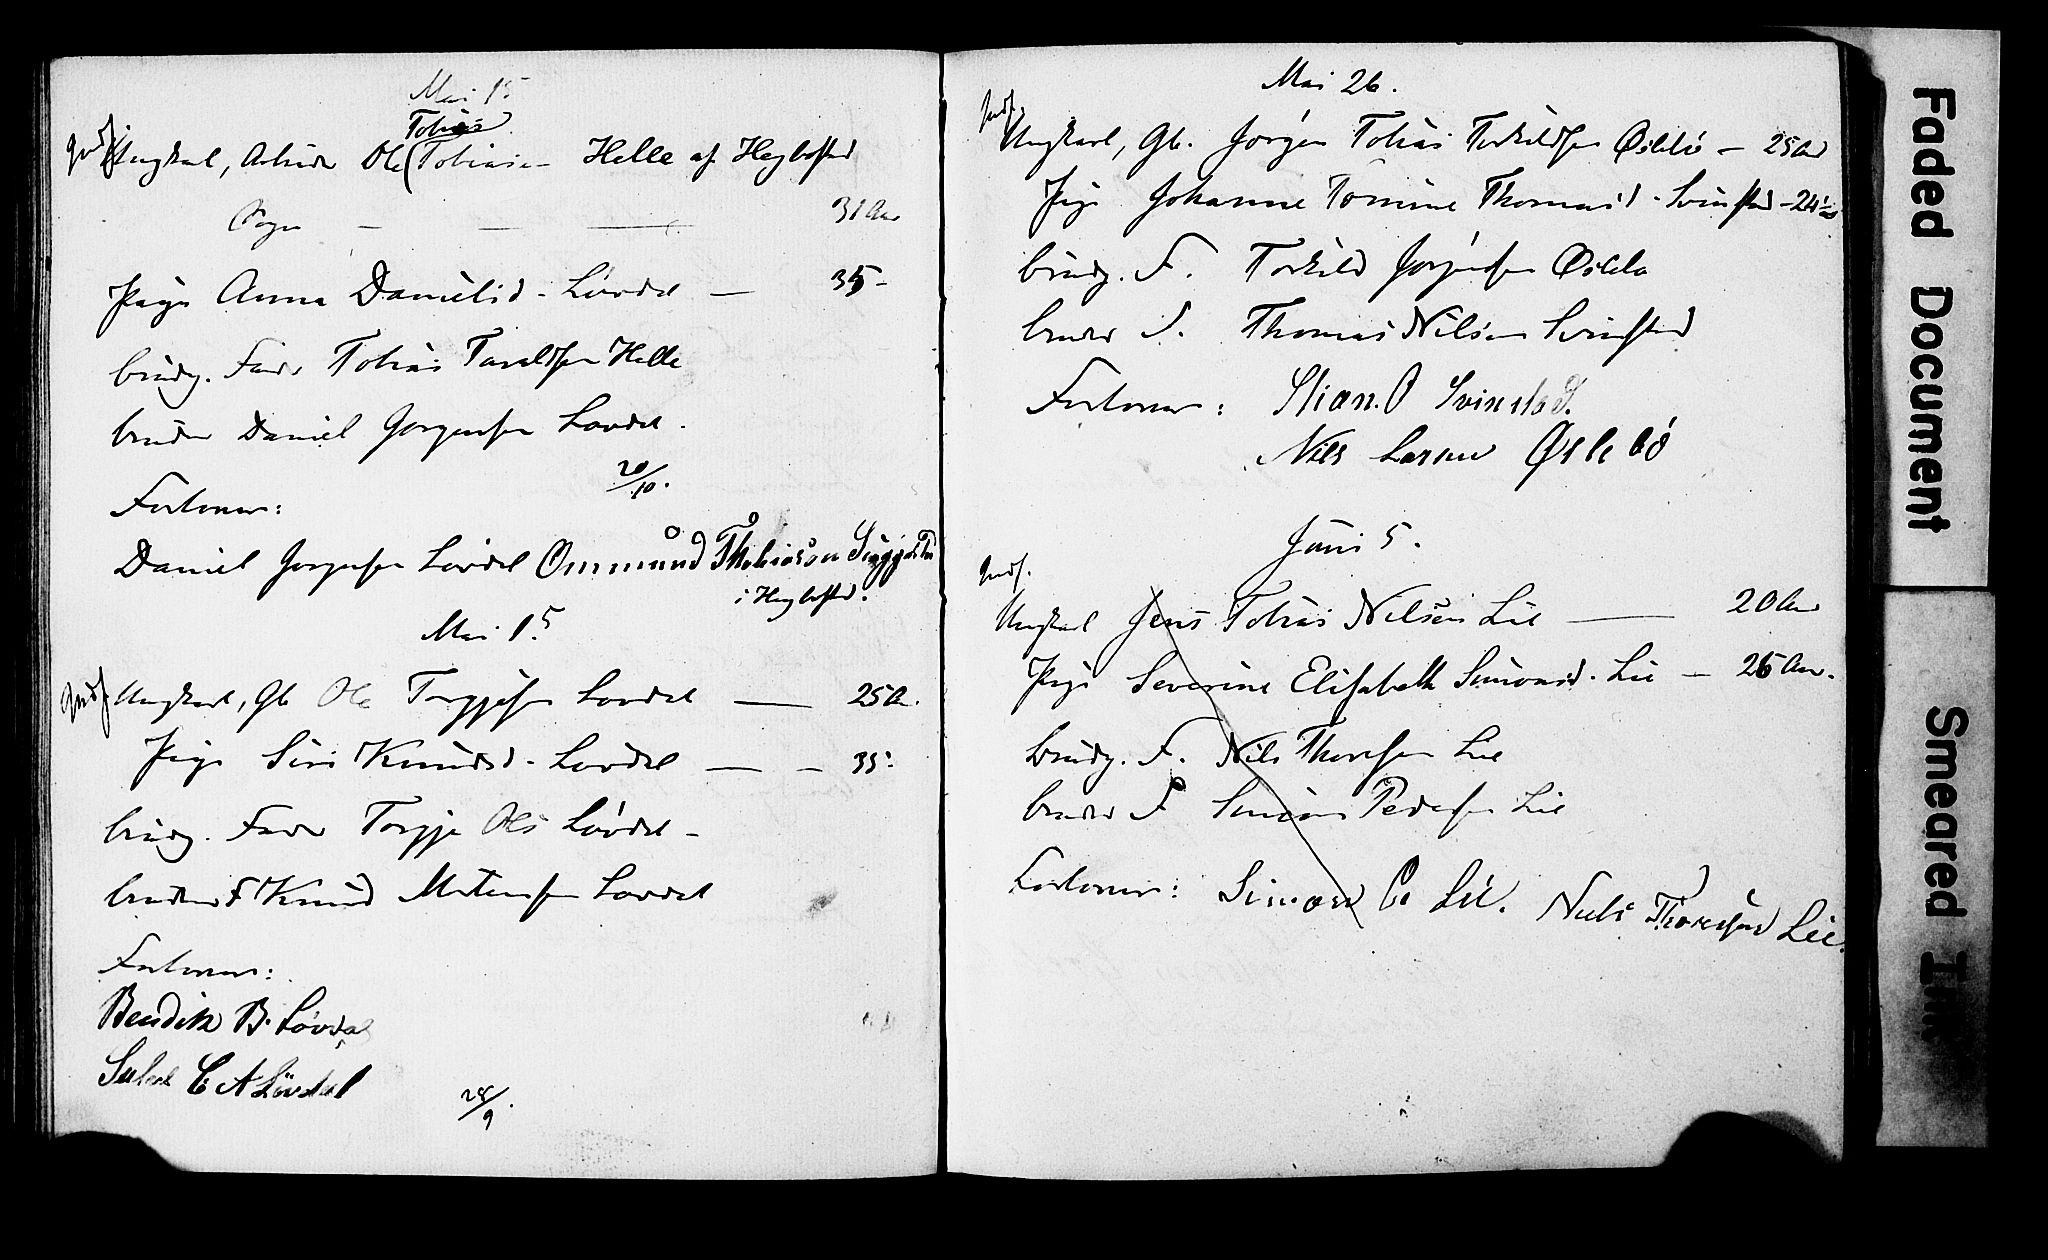 Mai 15
Tobias
Indf. Ungkarl, Arbeider Ole (Tobiase- Helle af Hegbostad
Sogn — — — 31 Aar
Pige Anna Danielsd. Løvdal — 35 -
brudg. Fader Tobias Taraldsen Helle
bruden Daniel Jørgensen Løvdal.
20/10.
Forlover:
Daniel Jørgensen Løvdal Ommund Thobiasen
i Hegbostad.
Mai 15
Indf. Ungkarl, Gb Ole Torgjesen Løvdal — 25 A.
Pige Siri Knudsd. Løvdal — — 35.
brudg. Fader Torgje Ols Løvdal -
bruden F Knud Mortensen Løvdal
Forlover:
Bendik B. Løvdal
C A Løvdal
28/9.
Mai 26.
Indf.
Ungkarl, Gb. Jørgen Tobias Torkildsen Øslebø — 25 Aar
Pige Johanne Tomine Thomasd. Svinstad - 24 1/2
brudg. F. Torkild Jørgensen Øslebø
bruden F. Thomas Nilsen Svinstad
Forlover: Stian. O Svinstad.
Nils Larsen Øslebø
Juni 5.
Indf.
Ungkarl Jens Tobias Nilsen Lie — 20 Aar
Pige Severine Elisabeth Simonsd. Lie — 26 Aar.
brudg. F. Nils Thorsen Lie
bruden F Simon Pedersen Lie
Forlover: Simon P Lie. Niels Thoresen Lie.
Faded Document
Smeared Ink